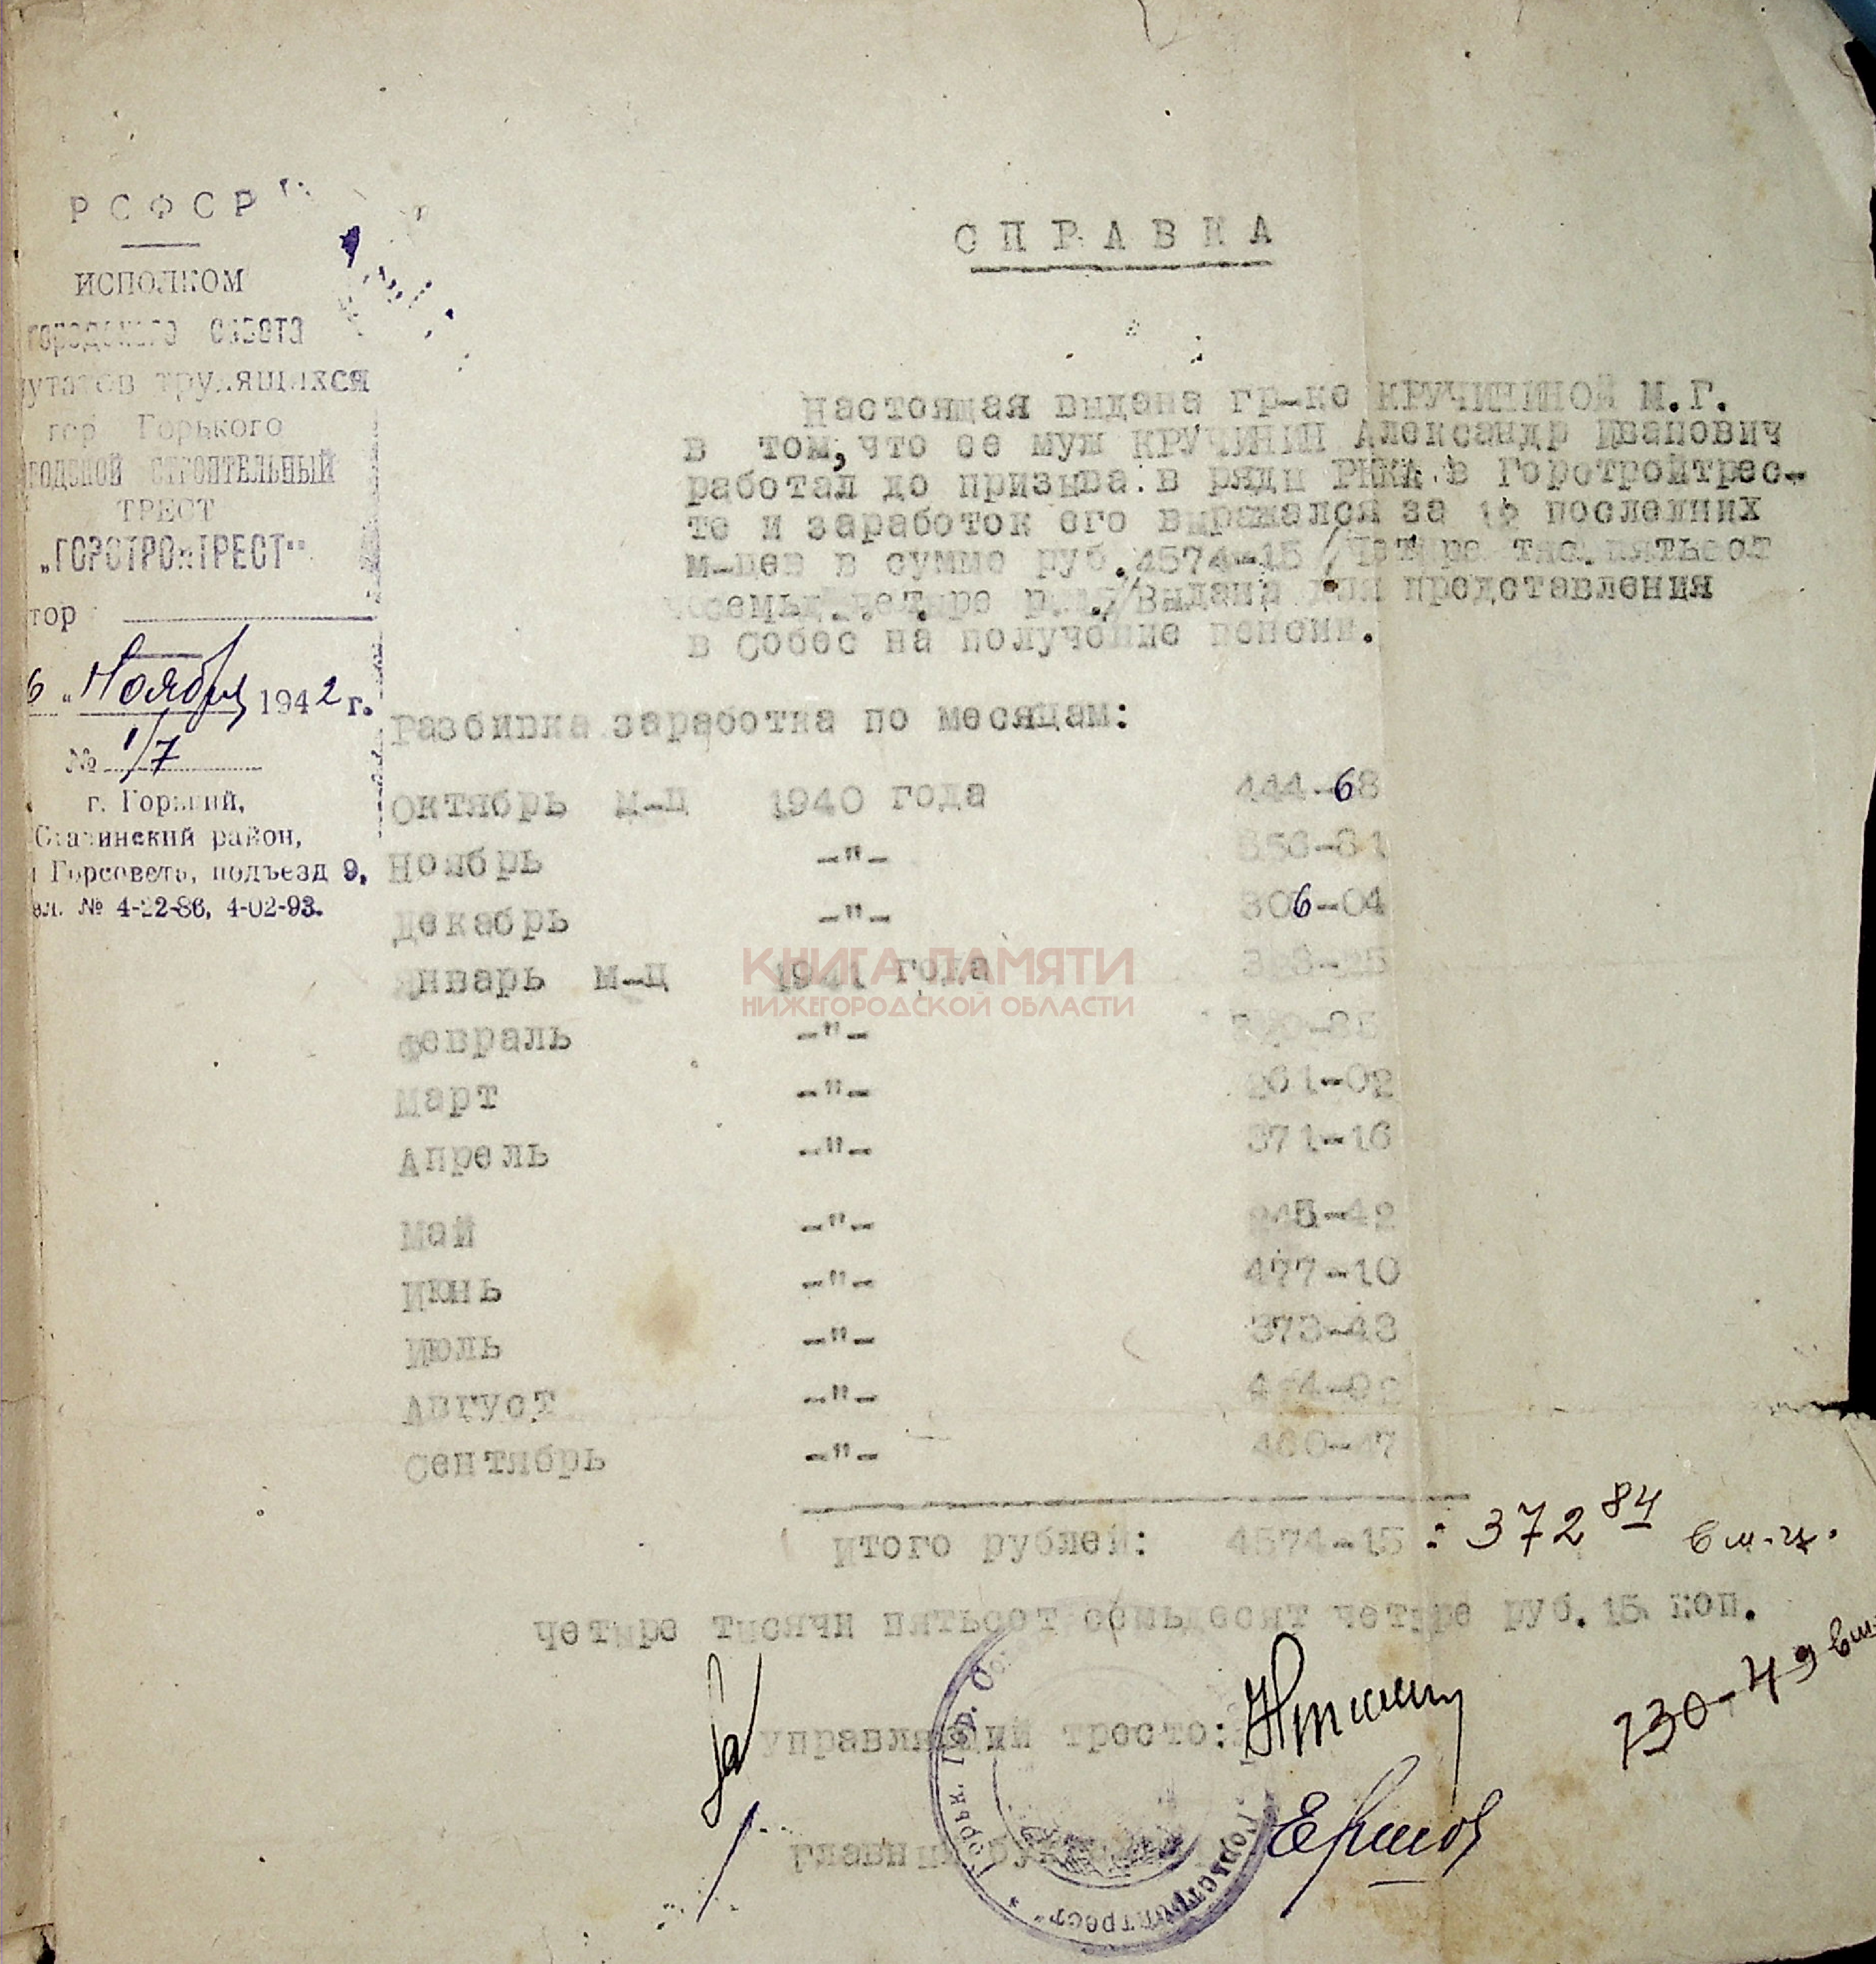 РСФСР
ИСПОЛКОМ
городского совета
путатов трудящихся
гор Горького
родской строительный
ТРЕСТ
„ГОРСТРОЙТРЕСТ"
тор
6 „ Ноября 1942 г.
№ 1/7
г. Горький,
Сталинский район,
Горсовета, подъезд 9,
ел. № 4-22-86, 4-02-93.
СПРАВКА
Настоящая выдана гр-ке КРУЧИНИНОЙ М.Г.
в том, что ее муж КРУЧИНИН Александр Иванович
работал до призыва в ряды РККА в Горстройтрес-
те и заработок его выражался за 12 последних
м-цев в сумме руб. 4574-15 /Четыре тыс. пятьсот
семьд. четыре руб./ Выдана для представления
в Собес на получение пенсии.
Разбивка заработка по месяцам:
Октябрь м-ц 1940 года 444-68
Ноябрь -"-
Декабрь -"- 306-04
Январь м-ц 1941 года
Февраль -"-
Март -"- 261-02
Апрель -"- 371-16
Май -"- 245-42
Июнь -"- 477-10
Июль -"- 373-43
Август -"-
Сентябрь -"- 460-47
КНИГА ПАМЯТИ
НИЖЕГОРОДСКОЙ ОБЛАСТИ
Итого рублей: 4574-15 : 372 84 в м-ц.
Четыре тысячи пятьсот семьдесят четыре руб. 15 коп.
130-49 в м
Управляющий треста:
Главный бухгалтер
Ершов
Горьк. Гор.
Горстройтрест